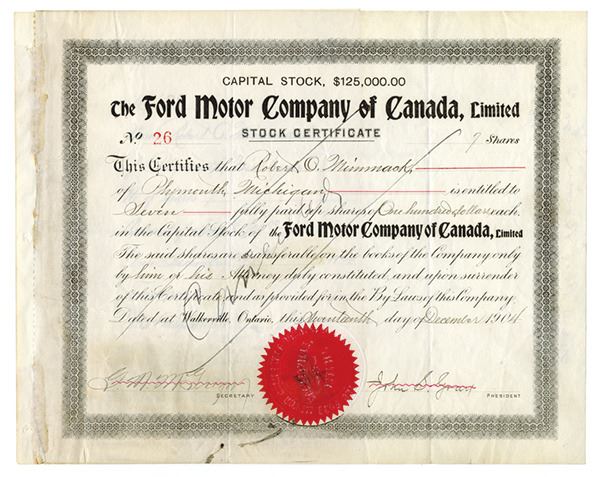 CAPITAL STOCK, $125,000.00
The Ford Motor Company of Canada, Limited
STOCK CERTIFICATE
No 26 7 Shares
This Certifies that Robert O. Mimmack
of Plymouth, Michigan is entitled to
Seven fully paid up shares of One hundred dollars each,
in the Capital Stock of the Ford Motor Company of Canada, Limited
The said shares are transferable on the books of the Company only
by him or his Attorney duly constituted, and upon surrender
of this Certificate and as provided for in the By Laws of this Company.
Dated at Walkerville, Ontario, this day of December 1904
SECRETARY John S. Gray PRESIDENT